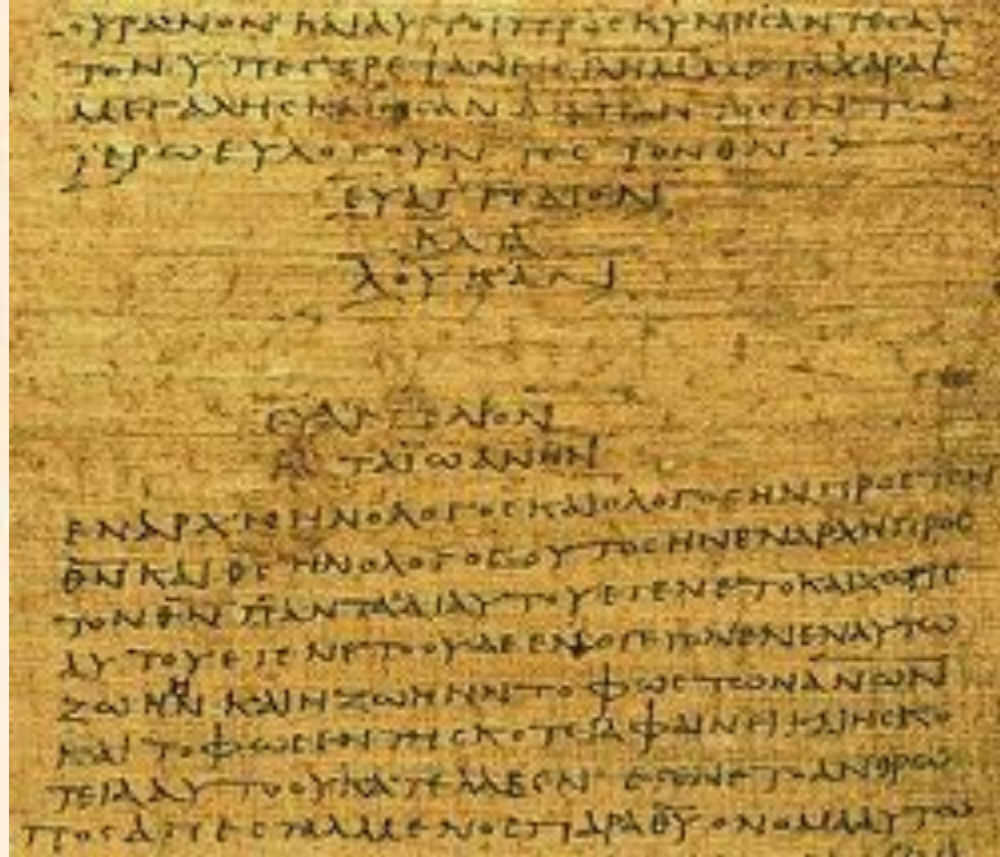 ΟΥΡΑΝΟΝ ΚΑΙ ΑΥΤΟΙ ΠΡΟCΚΥΝΗCΑΝΤΕC ΑΥ
ΤΟΝ ΥΠΕCΤΡΕΨΑΝ ΕΙC ΙΛΗΜ ΜΕΤΑ ΧΑΡΑC
ΜΕΓΑΛΗC ΚΑΙ ΗCΑΝ ΔΙΑ ΠΑΝΤΟC ΕΝ ΤΩ
ΙΕΡΩ ΕΥΛΟΓΟΥΝΤΕC ΤΟΝ ΘΝ
ΕΥΑΓΓΕΛΙΟΝ
ΚΑΤΑ
ΛΟΥΚΑΝ
ΕΥΑΓΓΕΛΙΟΝ
ΚΑΤΑ ΙΩΑΝΗΝ
ΕΝ ΑΡΧΗ ΗΝ Ο ΛΟΓΟC ΚΑΙ Ο ΛΟΓΟC ΗΝ ΠΡΟC ΤΟΝ
ΘΝ ΚΑΙ ΘC ΗΝ Ο ΛΟΓΟC ΟΥΤΟC ΗΝ ΕΝ ΑΡΧΗ ΠΡΟC
ΤΟΝ ΘΝ ΠΑΝΤΑ ΔΙ ΑΥΤΟΥ ΕΓΕΝΕΤΟ ΚΑΙ ΧΩΡΙC
ΑΥΤΟΥ ΕΓΕΝΕΤΟ ΟΥΔΕ ΕΝ Ο ΓΕΓΟΝΕΝ ΕΝ ΑΥΤΩ
ΖΩΗ ΗΝ ΚΑΙ Η ΖΩΗ ΗΝ ΤΟ ΦΩC ΤΩΝ ΑΝΩΝ
ΚΑΙ ΤΟ ΦΩC ΕΝ ΤΗ CΚΟΤΕΙΑ ΦΑΙΝΕΙ ΚΑΙ Η CΚΟ
ΤΕΙΑ ΑΥΤΟ ΟΥ ΚΑΤΕΛΑΒΕΝ ΕΓΕΝΕΤΟ ΑΝΘΡΩ
ΠΟC ΑΠΕCΤΑΛΜΕΝΟC ΠΑΡΑ ΘΥ ΟΝΟΜΑ ΑΥΤΩ